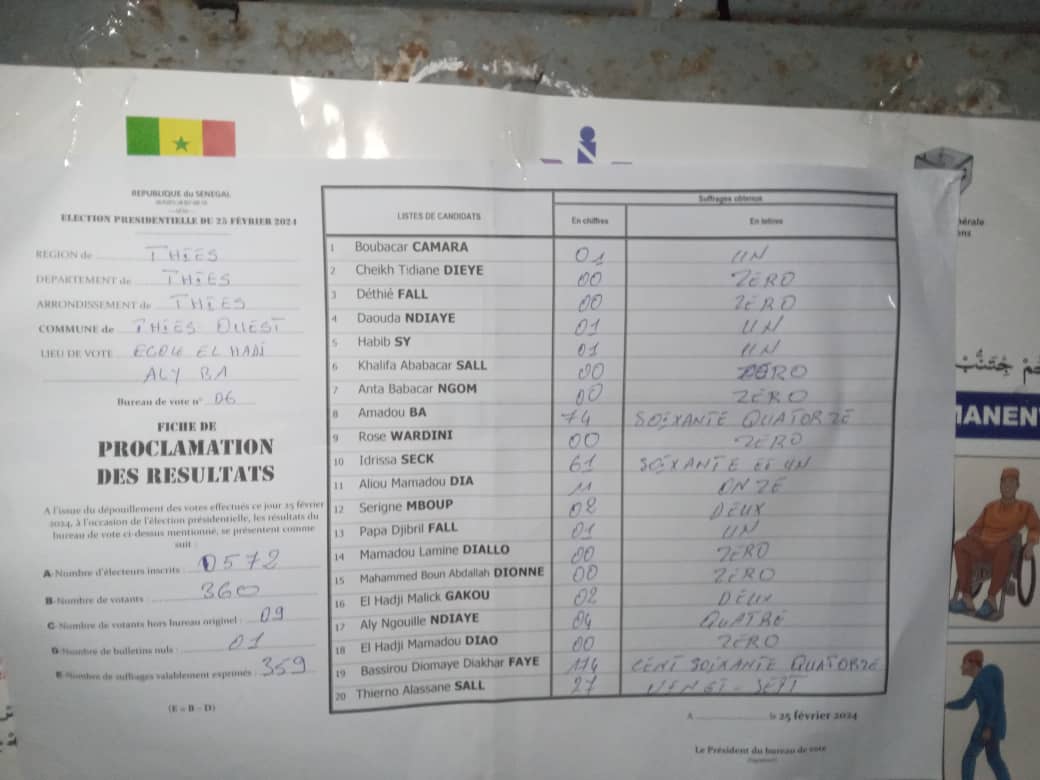 REPUBLIQUE du SENEGAL
ELECTION PRESIDENTIELLE DU 25 FÉVRIER 2024
REGION de THIES
DEPARTEMENT de THIES
ARRONDISSEMENT de THIES
COMMUNE de THIES OUEST
LIEU DE VOTE ECOLE EL HADJ
ALY BA
Bureau de vote n° 06
FICHE DE
PROCLAMATION
DES RESULTATS
A l'issue du dépouillement des votes effectués ce jour 25 février
2024, à l'occasion de l'élection présidentielle, les résultats du
bureau de vote ci-dessus mentionné, se présentent comme
suit :
A-Nombre d'électeurs inscrits : 0572
B-Nombre de votants : 360
C-Nombre de votants hors bureau originel : 09
D-Nombre de bulletins nuls : 01
E-Nombre de suffrages valablement exprimés : 359
(E = B - D)
LISTES DE CANDIDATS
Suffrages obtenus
En chiffres En lettres
1 Boubacar CAMARA 01 UN
2 Cheikh Tidiane DIEYE 00 ZERO
3 Déthié FALL 00 ZERO
4 Daouda NDIAYE 01 UN
5 Habib SY 01 UN
6 Khalifa Ababacar SALL 00 ZERO
7 Anta Babacar NGOM 00 ZERO
8 Amadou BA 74 SOIXANTE QUATORZE
9 Rose WARDINI 00 ZERO
10 Idrissa SECK 61 SOIXANTE ET UN
11 Aliou Mamadou DIA 11 ONZE
12 Serigne MBOUP 02 DEUX
13 Papa Djibril FALL 01 UN
14 Mamadou Lamine DIALLO 00 ZERO
15 Mahammed Boun Abdallah DIONNE 00 ZERO
16 El Hadji Malick GAKOU 02 DEUX
17 Aly Ngouille NDIAYE 04 QUATRE
18 El Hadji Mamadou DIAO 00 ZERO
19 Bassirou Diomaye Diakhar FAYE 174 CENT SOIXANTE QUATORZE
20 Thierno Alassane SALL 27 VINGT-SEPT
A le 25 février 2024
Le Président du bureau de vote
nérale
ens
MANENT